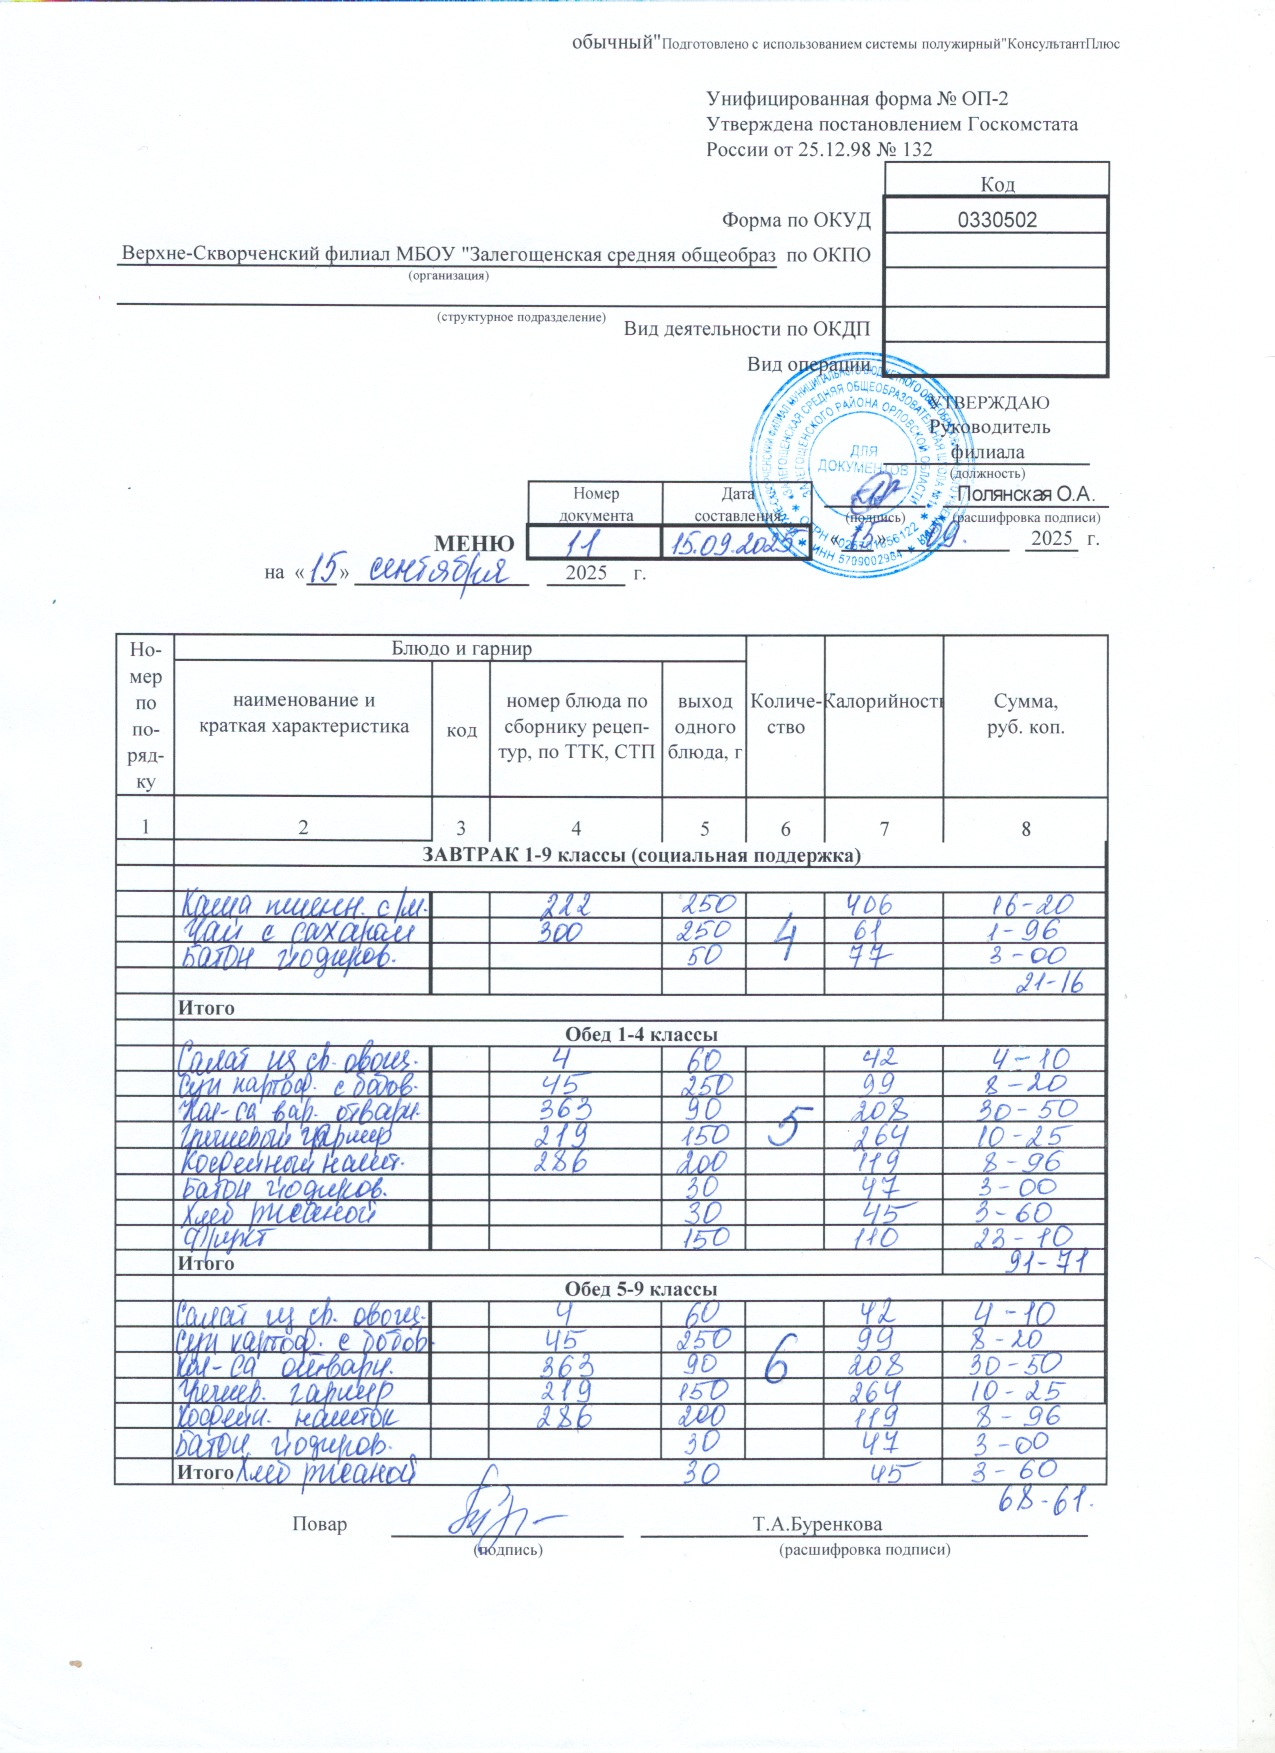 обычный"Подготовлено с использованием системы полужирный"КонсультантПлюс
Унифицированная форма № ОП-2
Утверждена постановлением Госкомстата
России от 25.12.98 № 132
Код
Форма по ОКУД 0330502
Верхне-Скворченский филиал МБОУ "Залегощенская средняя общеобраз по ОКПО
(организация)
(структурное подразделение)
Вид деятельности по ОКДП
Вид операции
УТВЕРЖДАЮ
Руководитель
филиала
(должность)
ДЛЯ
ДОКУМЕНТОВ
Полянская О.А.
(подпись) (расшифровка подписи)
Номер документа Дата составления
МЕНЮ 11 15.09.2025 «15» 09. 2025 г.
на «15» сентября 2025 г.
Но-
мер
по
по-
ряд-
ку
Блюдо и гарнир
наименование и
краткая характеристика
код
номер блюда по
сборнику рецеп-
тур, по ТТК, СТП
выход
одного
блюда, г
Количе-
ство
Калорийность
Сумма,
руб. коп.
1 2 3 4 5 6 7 8
ЗАВТРАК 1-9 классы (социальная поддержка)
Каша пшенн. с/м. 222 250 406 16-20
Чай с сахаром 300 250 4 61 1-96
Батон йодиров. 50 77 3-00
21-16
Итого
Обед 1-4 классы
Салат из св. овощ. 4 60 42 4-10
Суп картоф. с бобов. 45 250 99 8-20
Кол-са вар. отварн. 363 90 5 208 30-50
Гречневый гарнир 219 150 264 10-25
Кофейный напит. 286 200 119 8-96
Батон йодиров. 30 47 3-00
Хлеб ржаной 30 45 3-60
Фрукт 150 110 23-10
Итого 91-71
Обед 5-9 классы
Салат из св. овощ. 4 60 42 4-10
Суп картоф. с бобов. 45 250 99 8-20
Кол-са отварн. 363 90 6 208 30-50
Гречнев. гарнир 219 150 264 10-25
Кофейн. напиток 286 200 119 8-96
Батон йодиров. 30 47 3-00
Итого Хлеб ржаной 30 45 3-60
68-61.
Повар Т.А.Буренкова
(подпись) (расшифровка подписи)